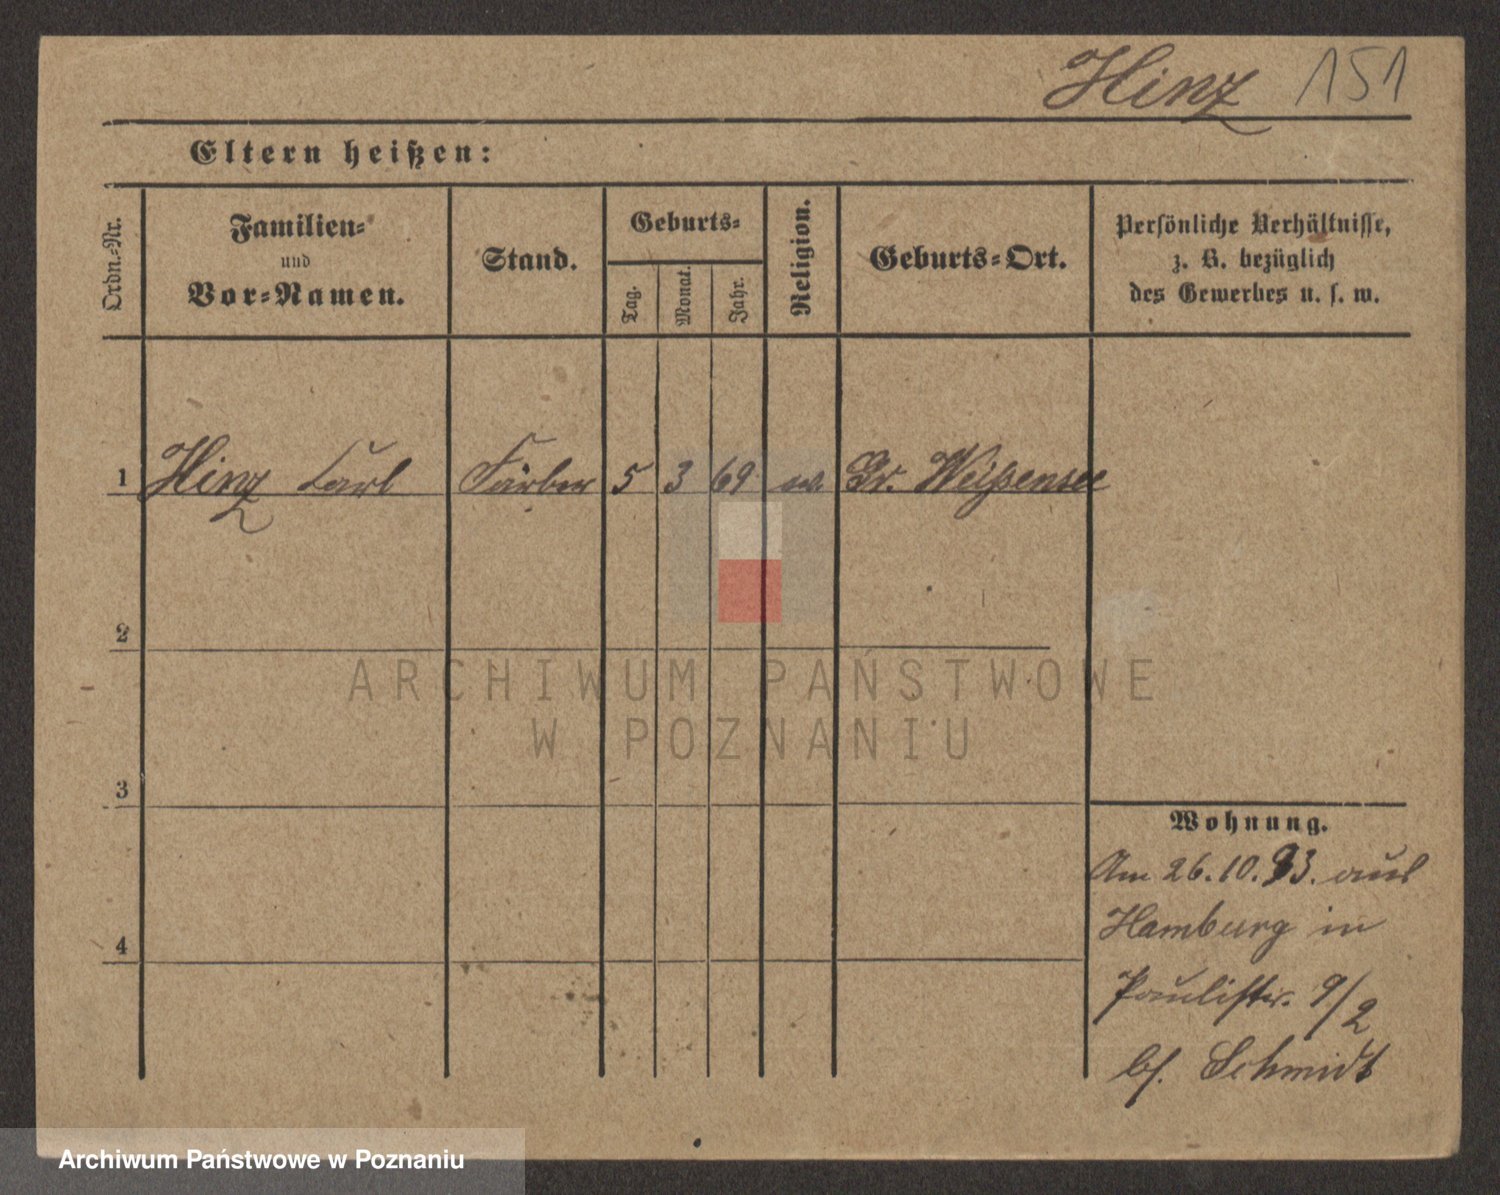 Hinz 151
Eltern heißen:
Ordn.-Nr.
Familien-
und
Vor-Namen.
Stand.
Geburts-
Tag.
Monat.
Jahr.
Religion.
Geburts-Ort.
Persönliche Verhältnisse,
z. B. bezüglich
des Gewerbes u. s. w.
1 Hinz Carl Färber 5 3 69 ev. Gr. Weißensee
2
3
4
ARCHIWUM PAŃSTWOWE
W POZNANIU
Wohnung.
Am 26.10.93. aus
Hamburg in
Paulistr. 9/2
bf. Schmidt
Archiwum Państwowe w Poznaniu